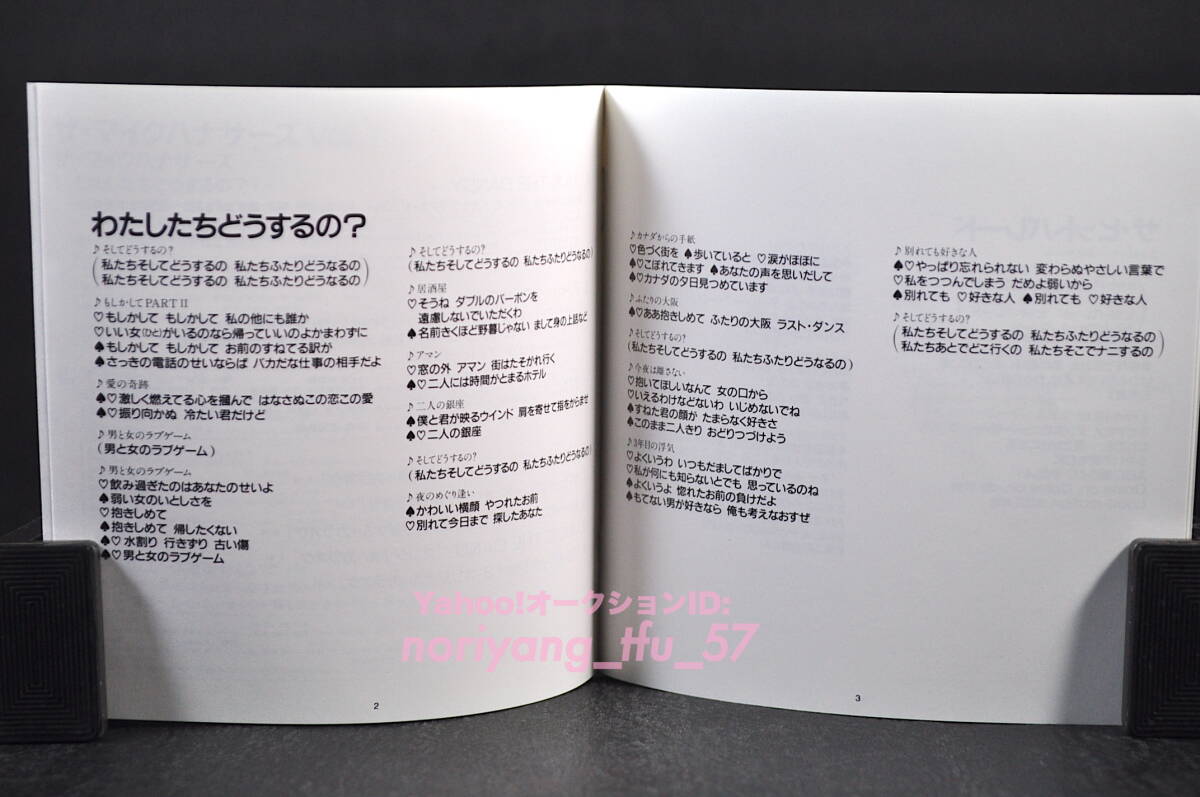 わたしたちどうするの?
♪そしてどうするの?
(私たちそしてどうするの 私たちふたりどうなるの
私たちそしてどうするの 私たちふたりどうなるの)
♪もしかしてPARTII
♡もしかして もしかして 私の他にも誰か
♡いい女(ひと)がいるのなら帰っていいのよかまわずに
♠もしかして もしかして お前のすねてる訳が
♠さっきの電話のせいならば バカだな仕事の相手だよ
♪愛の奇跡
♠♡激しく燃えてる心を掴んで はなさぬこの恋この愛
♠♡振り向かぬ 冷たい君だけど
♪男と女のラブゲーム
(男と女のラブゲーム)
♪男と女のラブゲーム
♡飲み過ぎたのはあなたのせいよ
♠弱い女のいとしさを
♡抱きしめて
♠抱きしめて 帰したくない
♠♡水割り 行きずり 古い傷
♠♡男と女のラブゲーム
♪そしてどうするの?
(私たちそしてどうするの 私たちふたりどうなるの)
♪居酒屋
♡そうね ダブルのバーボンを
遠慮しないでいただくわ
♠名前きくほど野暮じゃない まして身の上話など
♪アマン
♡窓の外 アマン 街はたそがれ行く
♠♡二人には時間がとまるホテル
♪二人の銀座
♠僕と君が映るウインド 肩を寄せて指をからませ
♠♡二人の銀座
♪そしてどうするの?
(私たちそしてどうするの 私たちふたりどうなるの)
♪夜のめぐり逢い
♠かわいい横顔 やつれたお前
♡別れて今日まで 探したあなた
2
♪カナダからの手紙
♡色づく街を ♠歩いていると ♡涙がほほに
♠♡こぼれてきます ♠あなたの声を思いだして
♠♡カナダの夕日見つめています
♪ふたりの大阪
♠♡ああ抱きしめて ふたりの大阪 ラスト・ダンス
♪そしてどうするの?
(私たちそしてどうするの 私たちふたりどうなるの)
♪今夜は離さない
♡抱いてほしいなんて 女の口から
♡いえるわけなどないわ いじめないでね
♠すねた君の顔が たまらなく好きさ
♠このまま二人きり おどりつづけよう
♪3年目の浮気
♡よくいうわ いつもだましてばかりで
♡私が何にも知らないとでも 思っているのね
♠よくいうよ 惚れたお前の負けだよ
♠もてない男が好きなら 俺も考えなおすぜ
♪別れても好きな人
♠♡やっぱり忘れられない 変わらぬやさしい言葉で
♡私をつつんでしまう だめよ弱いから
♠別れても ♡好きな人 ♠別れても ♡好きな人
♪そしてどうするの?
(私たちそしてどうするの 私たちふたりどうなるの
私たちあとでどこ行くの 私たちそこでナニするの)
3
Yahoo!オークションID:
noriyang_tfu_57